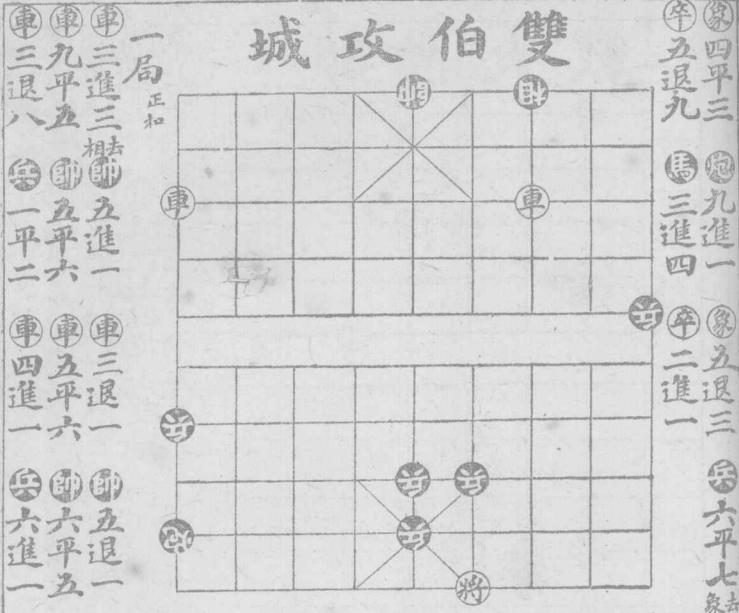 象四平三 炮九進一 象五退三 兵六平七去象
卒五退九 馬三進四 卒二進一
雙伯攻城
一局 正和
帥 相
車 車
兵
兵
兵 兵
兵
將
車三進三去相 帥五進一 車三退一 帥五退一
車九平五 帥五平六 車五平六 帥六平五
車三退八 兵一平二 車四進一 兵六進一